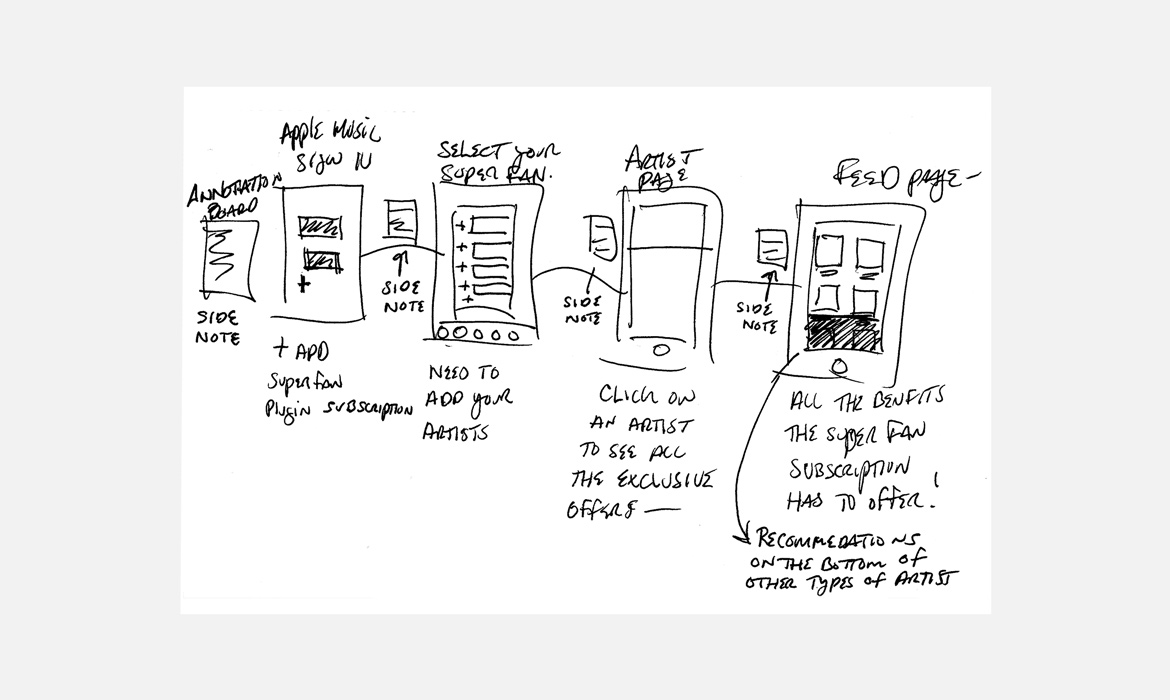 ANNOTATION
BOARD
SIDE
NOTE
Apple Music
Sign IN
+ ADD
SuperFan
Plugin SUBSCRIPTION
SIDE
NOTE
SELECT your
SUPER FAN.
NEED TO
ADD your
ARTISTS
SIDE
NOTE
ARTIST
PAGE
CLICK ON
AN ARTIST
TO SEE ALL
THE EXCLUSIVE
OFFERS —
SIDE
NOTE
FEED PAGE —
ALL THE BENFITS
THE SUPER FAN
SUBSCRIPTION
HAS TO OFFER!
RECOMMEDATIONS
ON THE BOTTOM OF
OTHER TYPES OF ARTIST